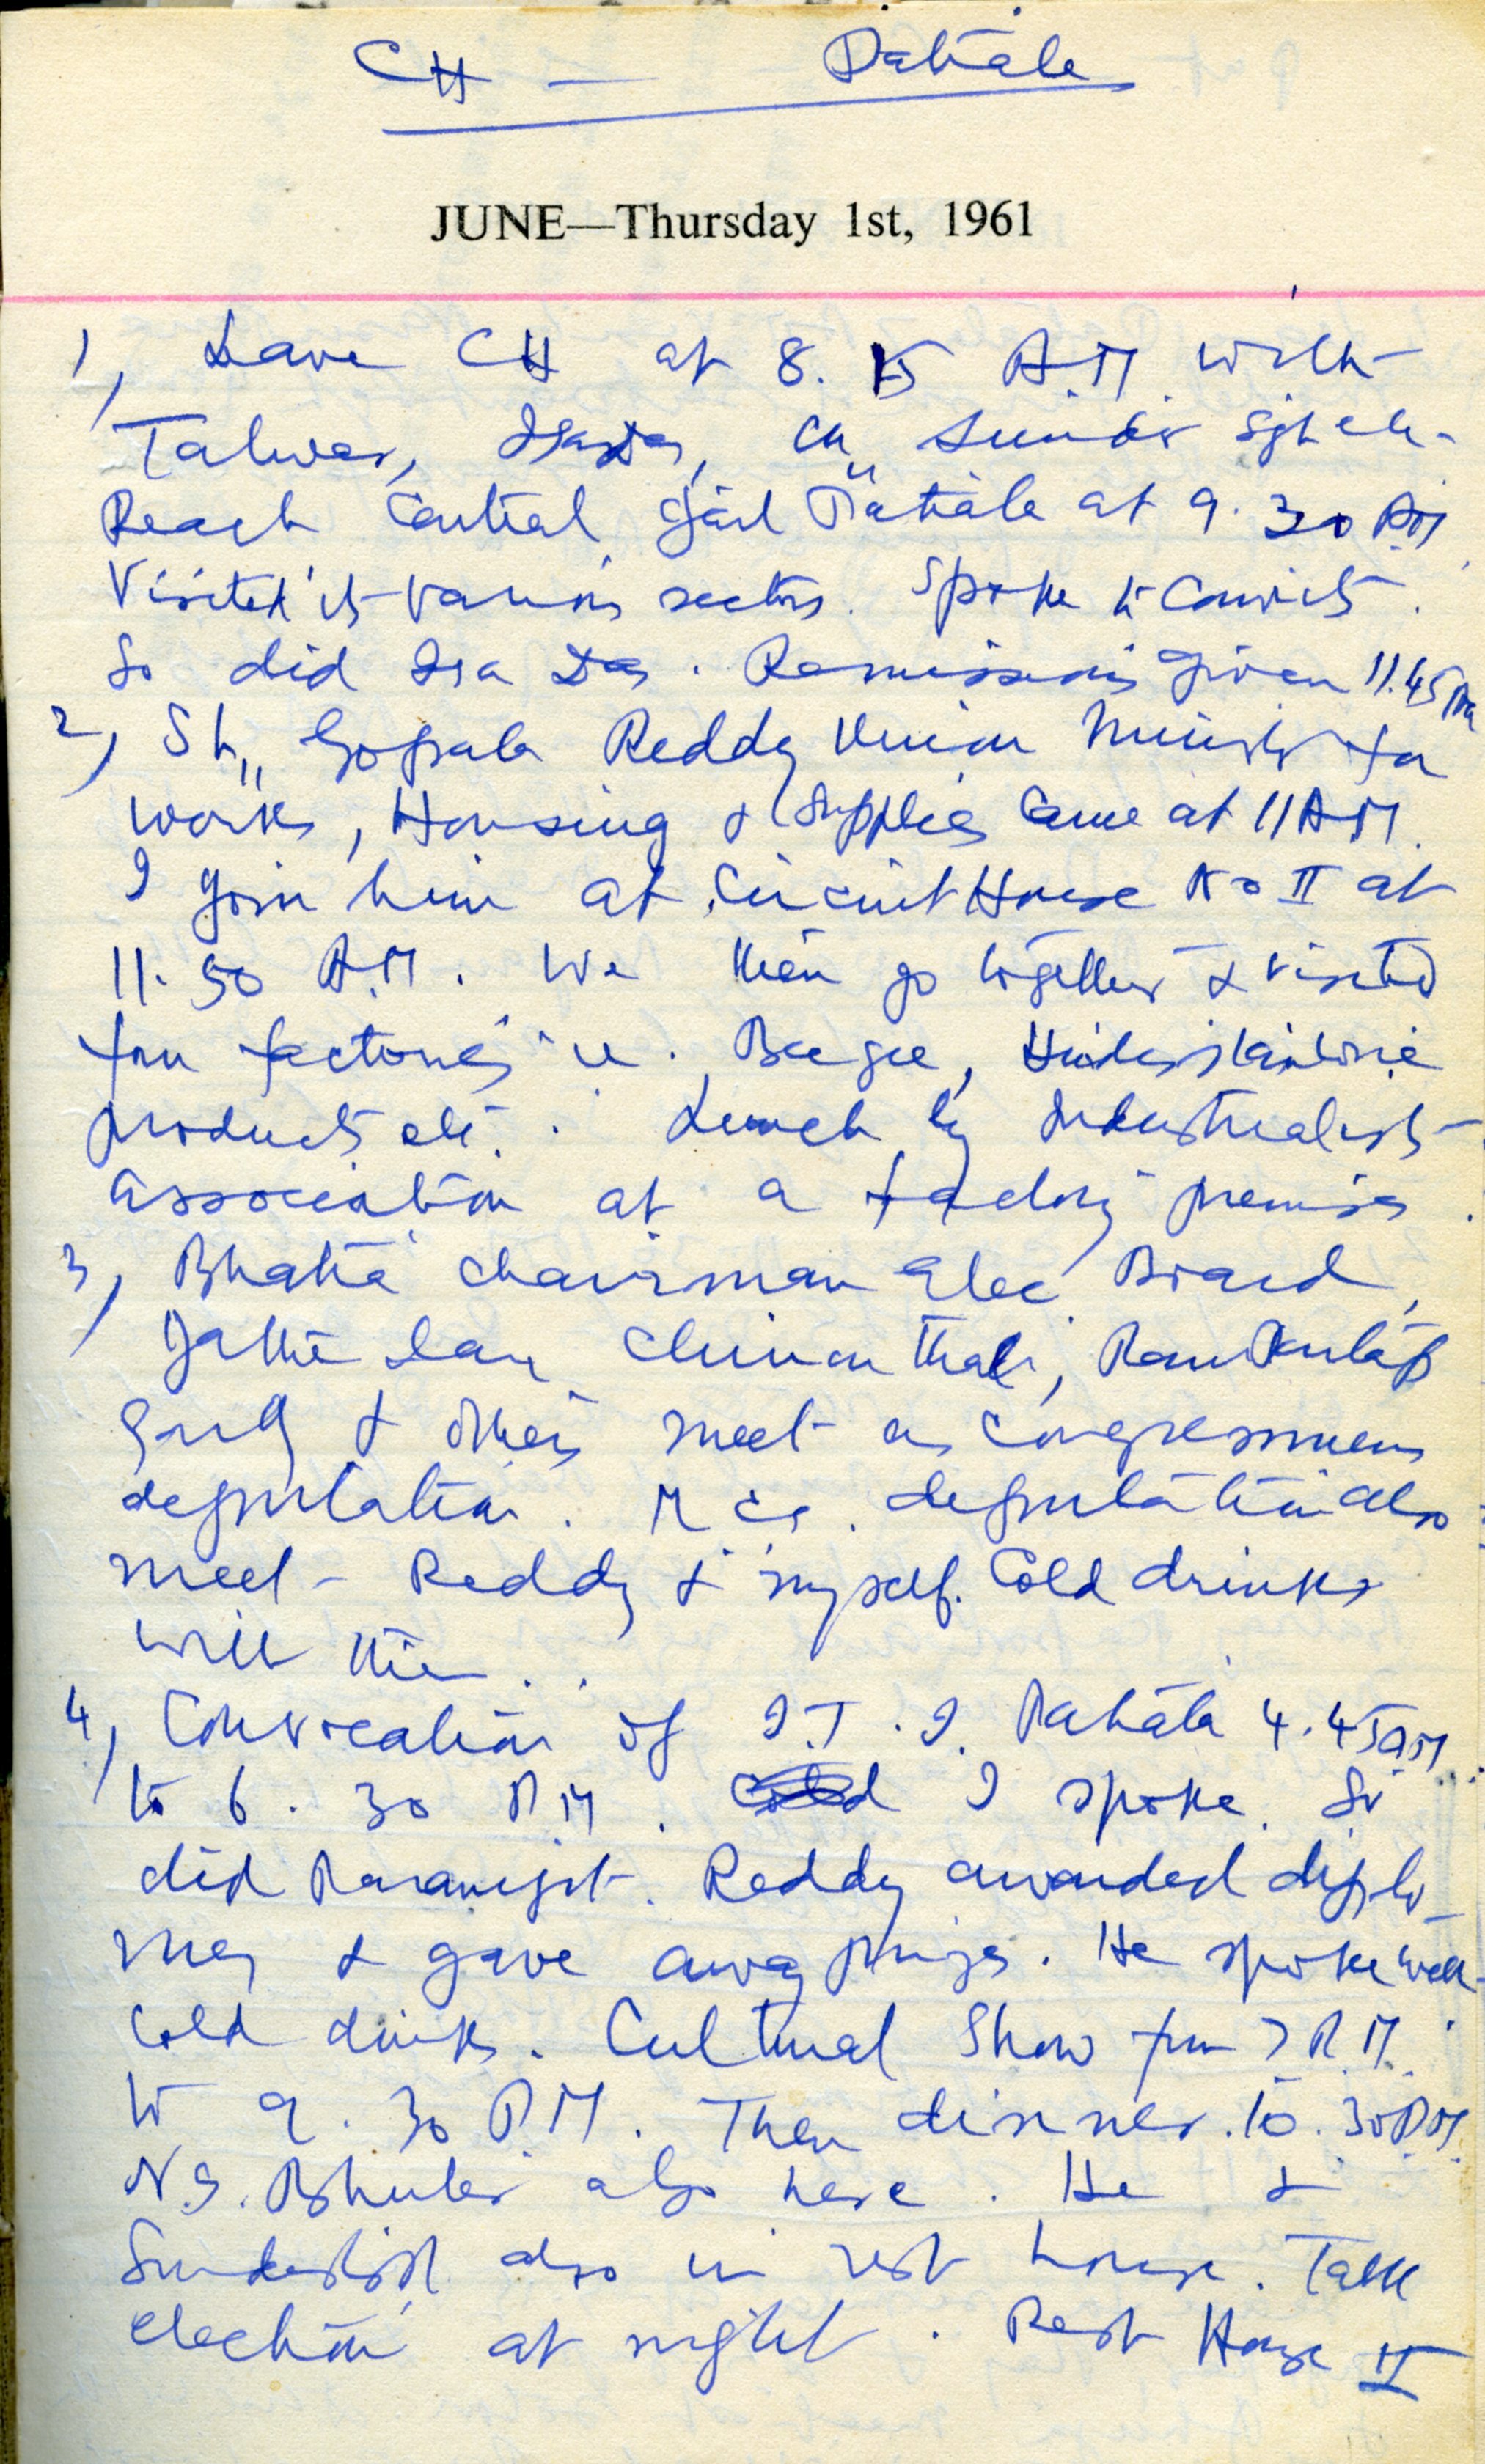 CH — Patiala
JUNE—Thursday 1st, 1961
1, Leave CH at 8. 15 A.M with
Talwar, Isa Das, Ch,, Sunder Singh etc.
Reach Central Jail Patiala at 9.30 AM
Visited its various sectors. Spoke to Convicts.
So did Isa Das. Remissions given 11.45 AM
2, Sh,, Gopala Reddy Union Minister for
Works, Housing & Supplies Came at 11 AM.
I join him at Circuit House No II at
11.50 A.M. We then go together & visited
four factories ie. Beegee,
products etc. Lunch by Industrialists
association at a factory premises.
3, Bhatia Chairman Elec Board,
Ram Partap
Garg & others meet as Congressmen
deputation. M cs. deputation also
meet - Reddy & myself. Cold drinks
with them.
4, Convocation of I.T.I. Patiala 4.45 PM
to 6.30 PM. I spoke. So
did Paramjit. Reddy awarded diplo-
mas & gave away prizes. He spoke well.
Cold drinks. Cultural Show from 7 P.M.
to 9.30 P.M. Then dinner. 10.30 P.M.
N.S. Bhuler also here. He &
Sundersingh also in rest house. Talk
election at night. Rest House II